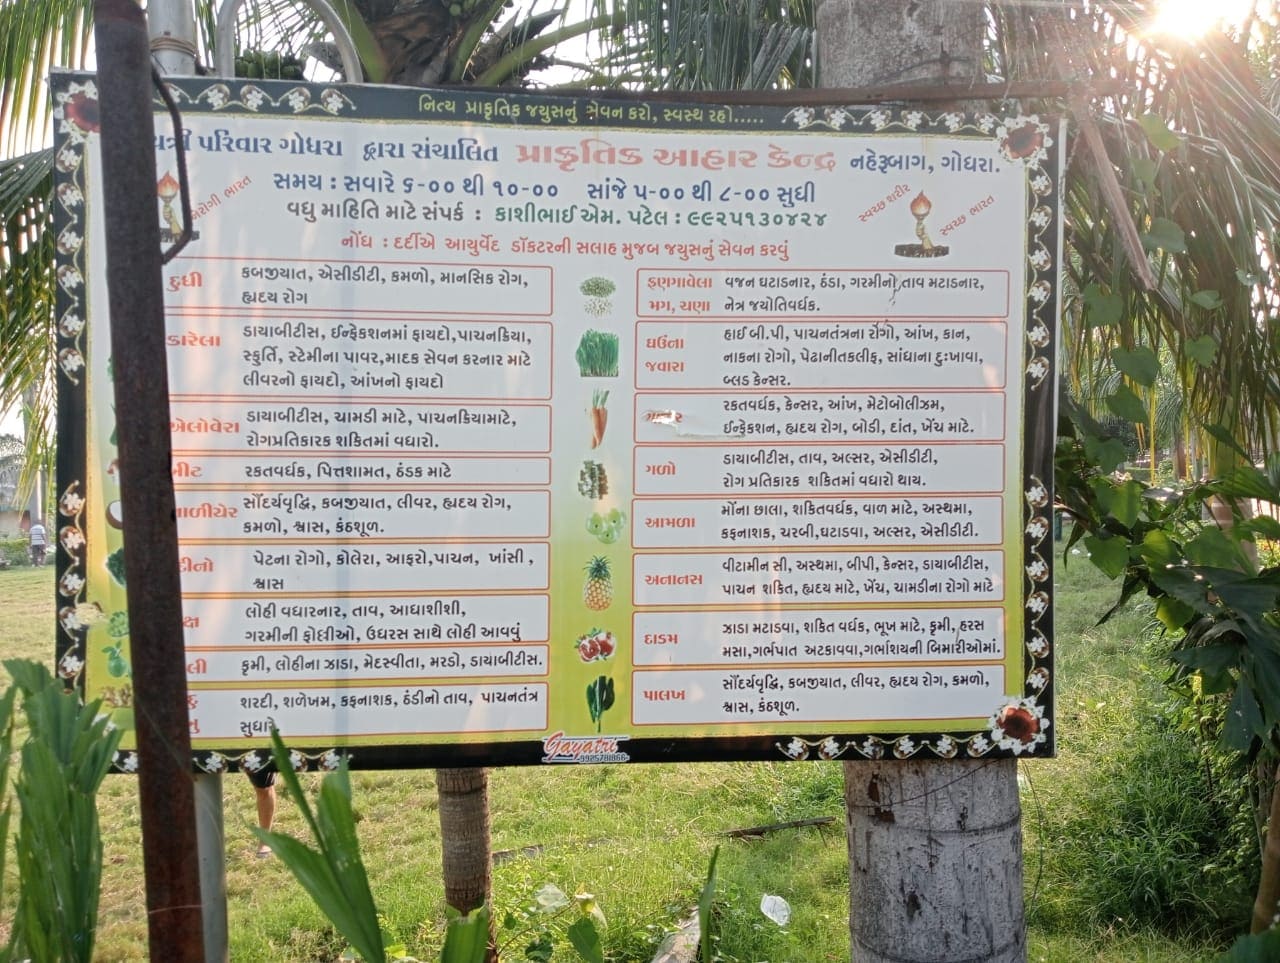 નિત્ય પ્રાકૃતિક જ્યુસનું સેવન કરો, સ્વસ્થ રહો.....
પરિવાર ગોધરા દ્વારા સંચાલિત પ્રાકૃતિક આહાર કેન્દ્ર નહેરૂબાગ, ગોધરા.
સમય : સવારે ૬-૦૦ થી ૧૦-૦૦ સાંજે ૫-૦૦ થી ૮-૦૦ સુધી
વધુ માહિતિ માટે સંપર્ક : કાશીભાઈ એમ. પટેલ : ૯૯૨૫૧૩૦૪૨૪
ભારત
સ્વચ્છ શરીર
સ્વચ્છ ભારત
નોંધ : દર્દીએ આયુર્વેદ ડૉકટરની સલાહ મુજબ જ્યુસનું સેવન કરવું
દુધી
કબજીયાત, એસીડીટી, કમળો, માનસિક રોગ,
હ્યદય રોગ
કારેલા
ડાયાબીટીસ, ઈન્ફેકશનમાં ફાયદો,પાચનક્રિયા,
સ્ફુર્તિ, સ્ટેમીના પાવર,માદક સેવન કરનાર માટે
લીવરનો ફાયદો, આંખનો ફાયદો
એલોવેરા
ડાયાબીટીસ, ચામડી માટે, પાચનક્રિયામાટે,
રોગપ્રતિકારક શકિતમાં વધારો.
બીટ
રકતવર્ધક, પિત્તશામત, ઠંડક માટે
સૌંદર્યવૃદ્ધિ, કબજીયાત, લીવર, હ્યદય રોગ,
કમળો, શ્વાસ, કંઠશૂળ.
પેટના રોગો, કોલેરા, આફરો,પાચન, ખાંસી ,
શ્વાસ
લોહી વધારનાર, તાવ, આધાશીશી,
ગરમીની ફોલ્લીઓ, ઉધરસ સાથે લોહી આવવું
કૃમી, લોહીના ઝાડા, મેદસ્વીતા, મરડો, ડાયાબીટીસ.
શરદી, શળેખમ, કફનાશક, ઠંડીનો તાવ, પાચનતંત્ર
ફણગાવેલા
મગ, ચણા
વજન ઘટાડનાર, ઠંડા, ગરમીનો તાવ મટાડનાર,
નેત્ર જ્યોતિવર્ધક.
ઘઉંના
જવારા
હાઈ બી.પી, પાચનતંત્રના રોગો, આંખ, કાન,
નાકના રોગો, પેઢાનીતકલીફ, સાંધાના દુઃખાવા,
બ્લડ કેન્સર.
રકતવર્ધક, કેન્સર, આંખ, મેટોબોલીઝમ,
ઈન્ફેકશન, હ્યદય રોગ, બોડી, દાંત, ખેંચ માટે.
ગળો
ડાયાબીટીસ, તાવ, અલ્સર, એસીડીટી,
રોગ પ્રતિકારક શકિતમાં વધારો થાય.
આમળા
મોંના છાલા, શકિતવર્ધક, વાળ માટે, અસ્થમા,
કફનાશક, ચરબી,ઘટાડવા, અલ્સર, એસીડીટી.
અનાનસ
વીટામીન સી, અસ્થમા, બીપી, કેન્સર, ડાયાબીટીસ,
પાચન શકિત, હ્યદય માટે, ખેંચ, ચામડીના રોગો માટે
દાડમ
ઝાડા મટાડવા, શકિત વર્ધક, ભૂખ માટે, કૃમી, હરસ
મસા,ગર્ભપાત અટકાવવા,ગર્ભાશયની બિમારીઓમાં.
પાલખ
સૌંદર્યવૃદ્ધિ, કબજીયાત, લીવર, હ્યદય રોગ, કમળો,
શ્વાસ, કંઠશૂળ.
Gayatri